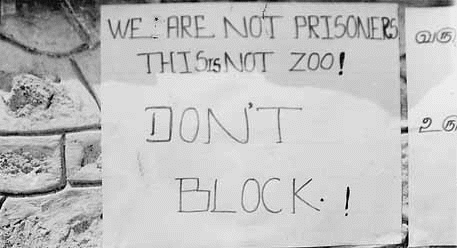 WE ARE NOT PRISONERS
THIS IS NOT ZOO!
DON'T
BLOCK. !